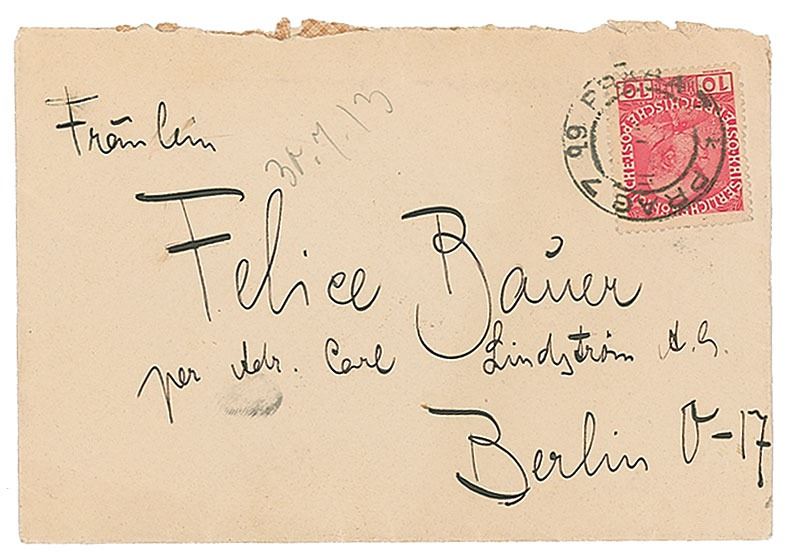 Fräulein
30.7.13
Felice Bauer
per Adr. Carl Lindström A.G.
Berlin O-17
10 10
PRAG 7